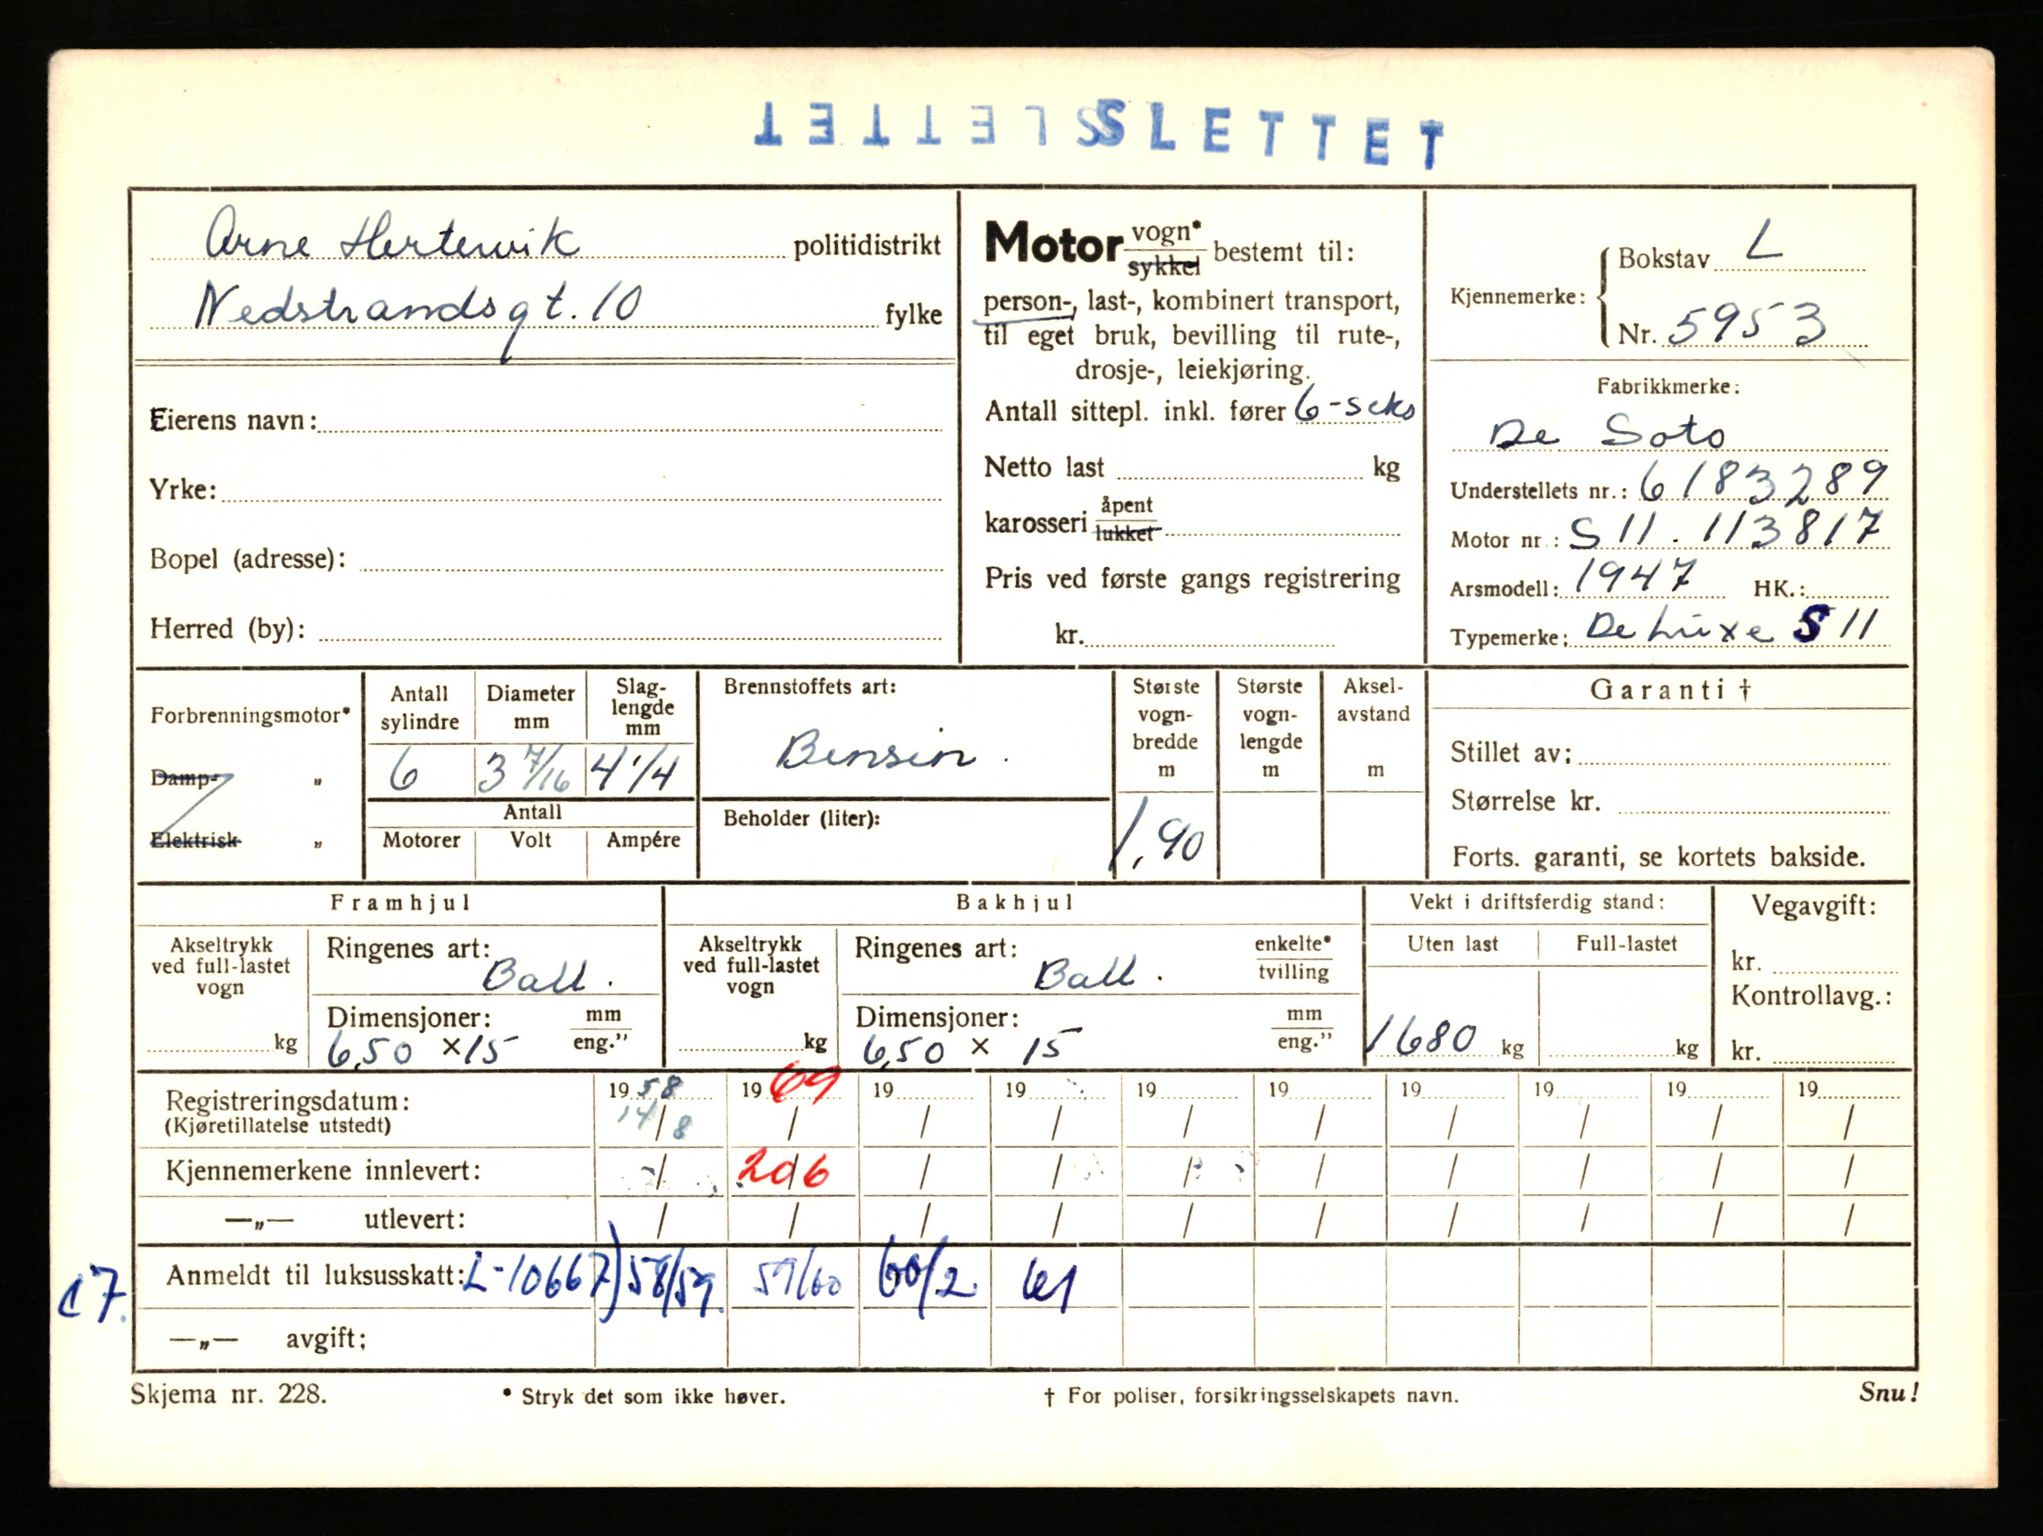 SLETTET SLETTET
Arne Hertervik politidistrikt
Nedstrandsgt. 10 fylke
Eierens navn:
Yrke:
Bopel (adresse):
Herred (by):
Motor vogn* sykkel bestemt til:
person-, last-, kombinert transport,
til eget bruk, bevilling til rute-,
drosje-, leiekjøring.
Antall sittepl. inkl. fører 6-seks
Netto last kg
karosseri åpent lukket
Pris ved første gangs registrering
kr.
Kjennemerke: Bokstav L
Nr. 5953
Fabrikkmerke:
De Soto
Understellets nr.: 6183289
Motor nr.: S 11. 113817
Arsmodell: 1947 HK.:
Typemerke: De Luxe S 11
Forbrenningsmotor*
Damp- "
Elektrisk "
Antall sylindre
6
Diameter mm
3 7/16
Slag-lengde mm
4 1/4
Antall
Motorer Volt Ampére
Brennstoffets art:
Bensin.
Beholder (liter):
Største vogn-bredde m
1,90
Største vogn-lengde m
Aksel-avstand m
Garanti †
Stillet av:
Størrelse kr.
Forts. garanti, se kortets bakside.
Framhjul
Akseltrykk ved full-lastet vogn
kg
Ringenes art:
Ball.
Dimensjoner: mm eng."
6,50 × 15
Bakhjul
Akseltrykk ved full-lastet vogn
kg
Ringenes art: enkelte* tvilling
Ball.
Dimensjoner: mm eng."
6,50 × 15
Vekt i driftsferdig stand:
Uten last Full-lastet
1680 kg kg
Vegavgift:
kr.
Kontrollavg.:
kr.
Registreringsdatum: 19 58 19 69 19 19 19 19 19 19 19 19
(Kjøretillatelse utstedt) 14/8 / / / / / / / / /
Kjennemerkene innlevert: / 20/6 / / / / / / / /
—„— utlevert: / / / / / / / / / /
Anmeldt til luksusskatt: L-10667) 58/59. 59/60 60/2. 61
—„— avgift:
Skjema nr. 228. * Stryk det som ikke høver. † For poliser, forsikringsselskapets navn. Snu!